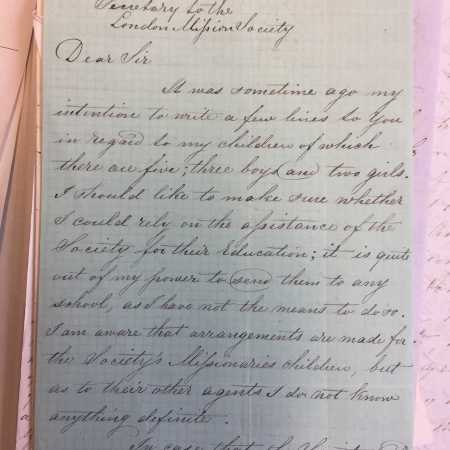 Secretary to the
London Mission Society
Dear Sir
It was sometime ago my
intention to write a few lines to You
in regard to my children of which
there are five; three boys and two girls.
I should like to make sure whether
I could rely on the assistance of the
Society for their Education; it is quite
out of my power to send them to any
school, as I have not the means to do so.
I am aware that arrangements are made for
the Society's Missionaries children, but
as to their other agents I do not know
anything definite.
In case that the